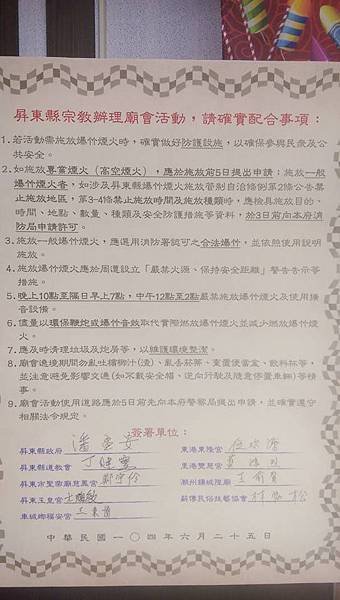 屏東縣宗教辦理廟會活動，請確實配合事項：
1. 若活動需施放爆竹煙火時，確實做好防護設施，以確保參與民眾及公
共安全。
2. 如施放專業煙火（高空煙火），應於施放前5日提出申請；施放一般
爆竹煙火者，如涉及屏東縣爆竹煙火施放管制自治條例第2條公告禁
止施放地區，第3-4條禁止施放時間及施放種類時，應檢具施放目的、
時間、地點、數量、種類及安全防護措施等資料，於3日前向本府消
防局申請許可。
3. 施放一般爆竹煙火，應選用消防署認可之合法爆竹，並依照使用說明
施放。
4. 施放爆竹煙火應於周邊設立「嚴禁火源、保持安全距離」警告告示等
措施。
5. 晚上10點至隔日早上7點，中午12點至2點嚴禁施放爆竹煙火及使用擴
音設備。
6. 儘量以環保鞭炮或爆竹音效取代實際燃放爆竹煙火並減少燃放爆竹煙
火。
7. 應及時清理垃圾及炮屑等，以維護環境整潔。
8. 廟會遶境期間勿亂吐檳榔汁（渣）、亂丟菸蒂、棄置便當盒、飲料杯等，
並注意避免影響交通（如不戴安全帽、逆向行駛及隨意停置車輛）等積
事。
9. 廟會活動使用道路應於5日前先向本府警察局提出申請，並確實遵守
相關法令規定。
簽署單位：
屏東縣政府 潘孟安
東港東隆宮
屏東縣道教會
東港雙慈宮
屏東市聖帝廟慈鳳宮
潮州鎮城隍廟
屏東玉皇宮
薪傳民俗技藝協會
車城鄉福安宮
中華民國一〇四年六月二十五日